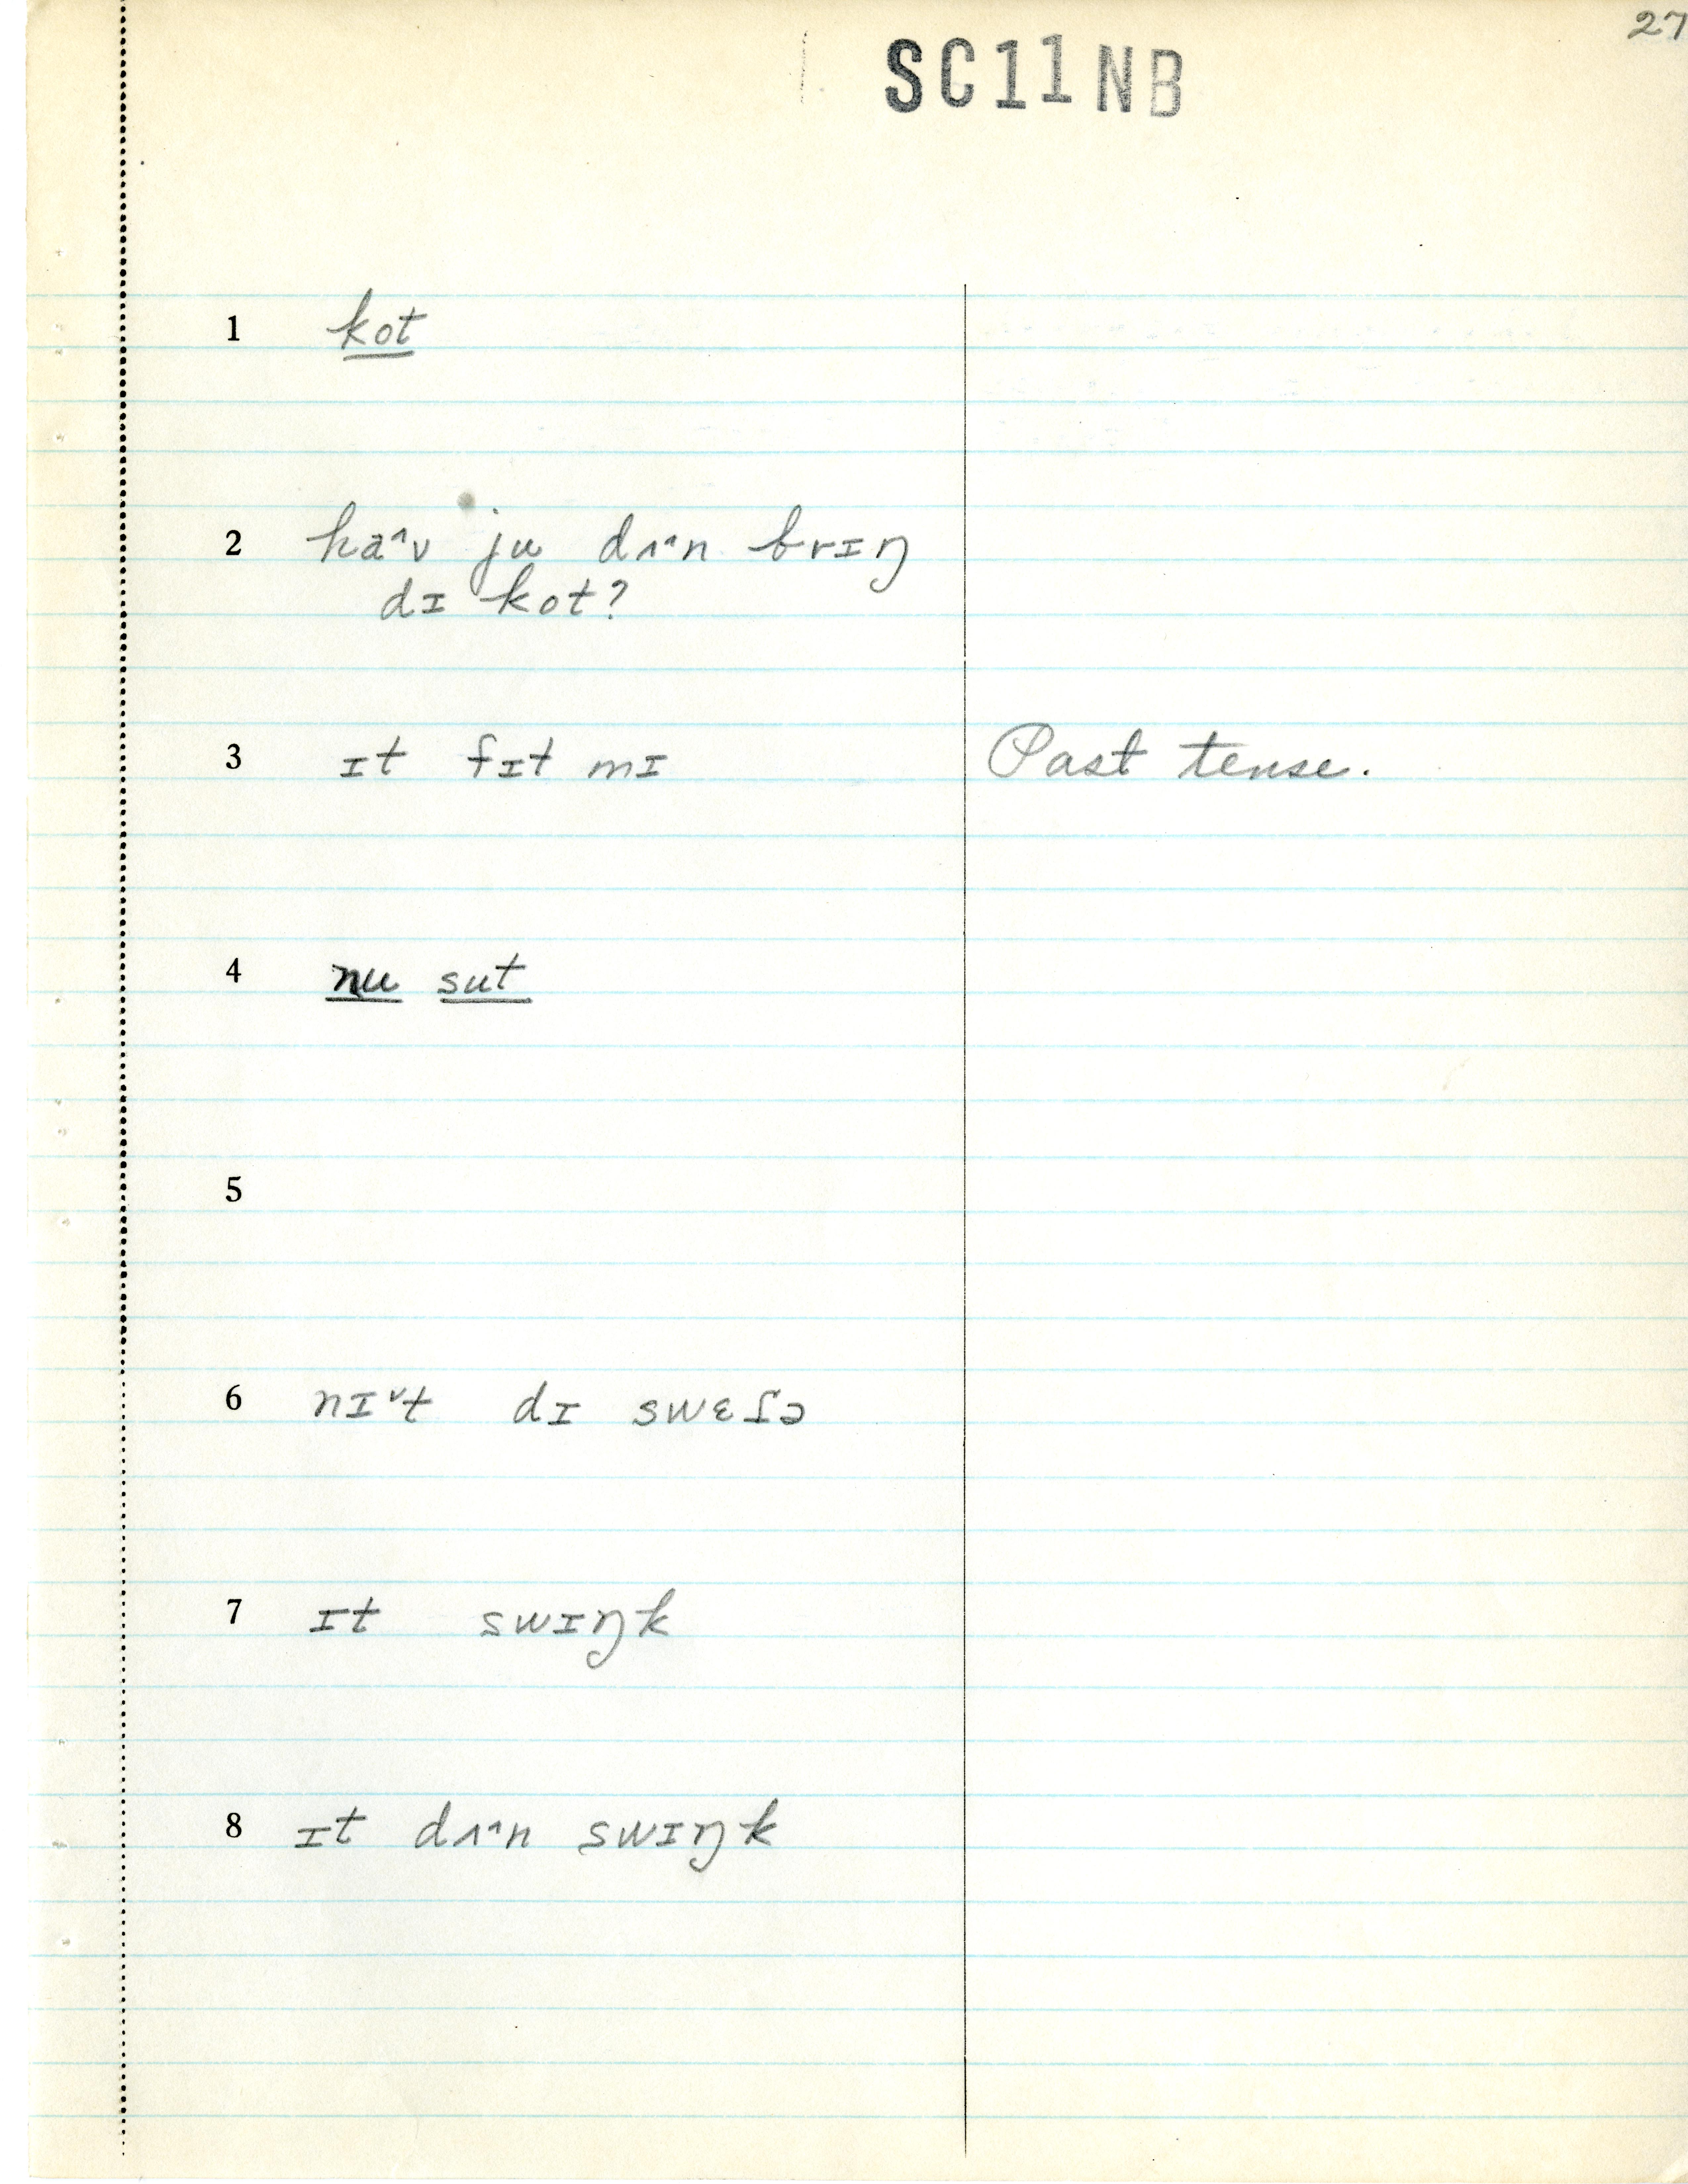 27
SC11NB
1 kot
2 ha˄v ju dʌ˄n brɪŋ
dɪ kot?
3 ɪt fɪt mɪ Past tense.
4 nu sut
5
6 nɪ˅t dɪ swɛɾə
7 ɪt swɪŋk
8 ɪt dʌ˄n swɪŋk